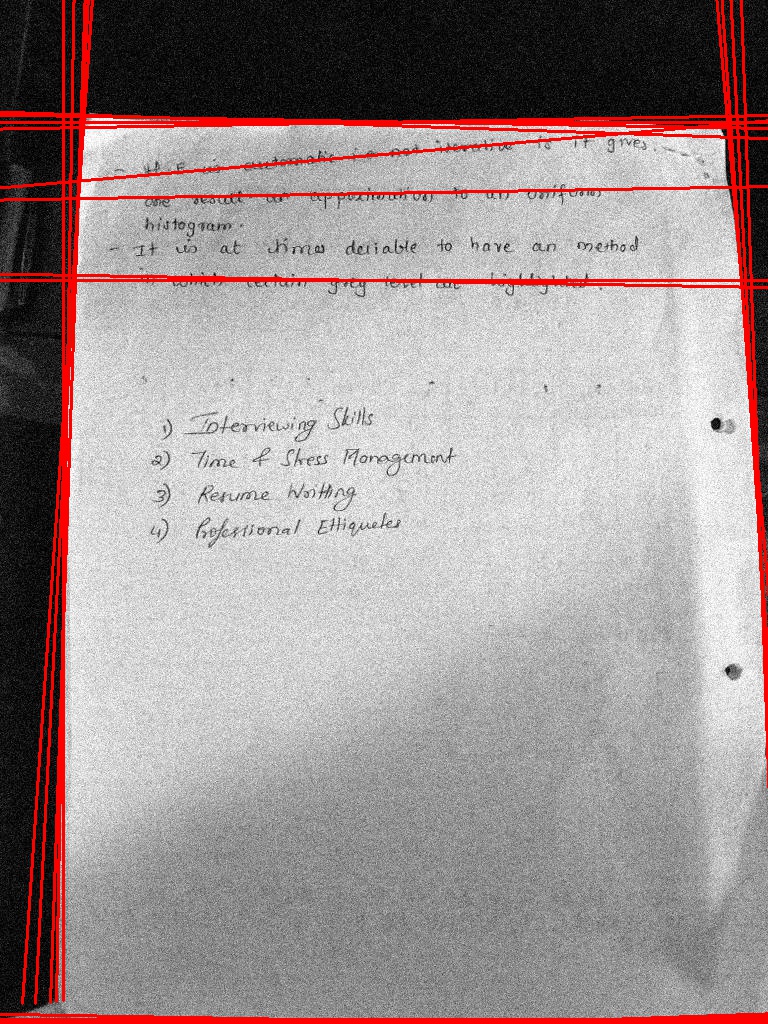 - H.E is automatic is not iterative is it gives
one result an approximation to an uniform
histogram.
- It is at times deriable to have an method
in which certain grey level are highlighted.
1) Interviewing Skills
2) Time & Stress Management
3) Resume Writting
4) Professional Ettiquetes